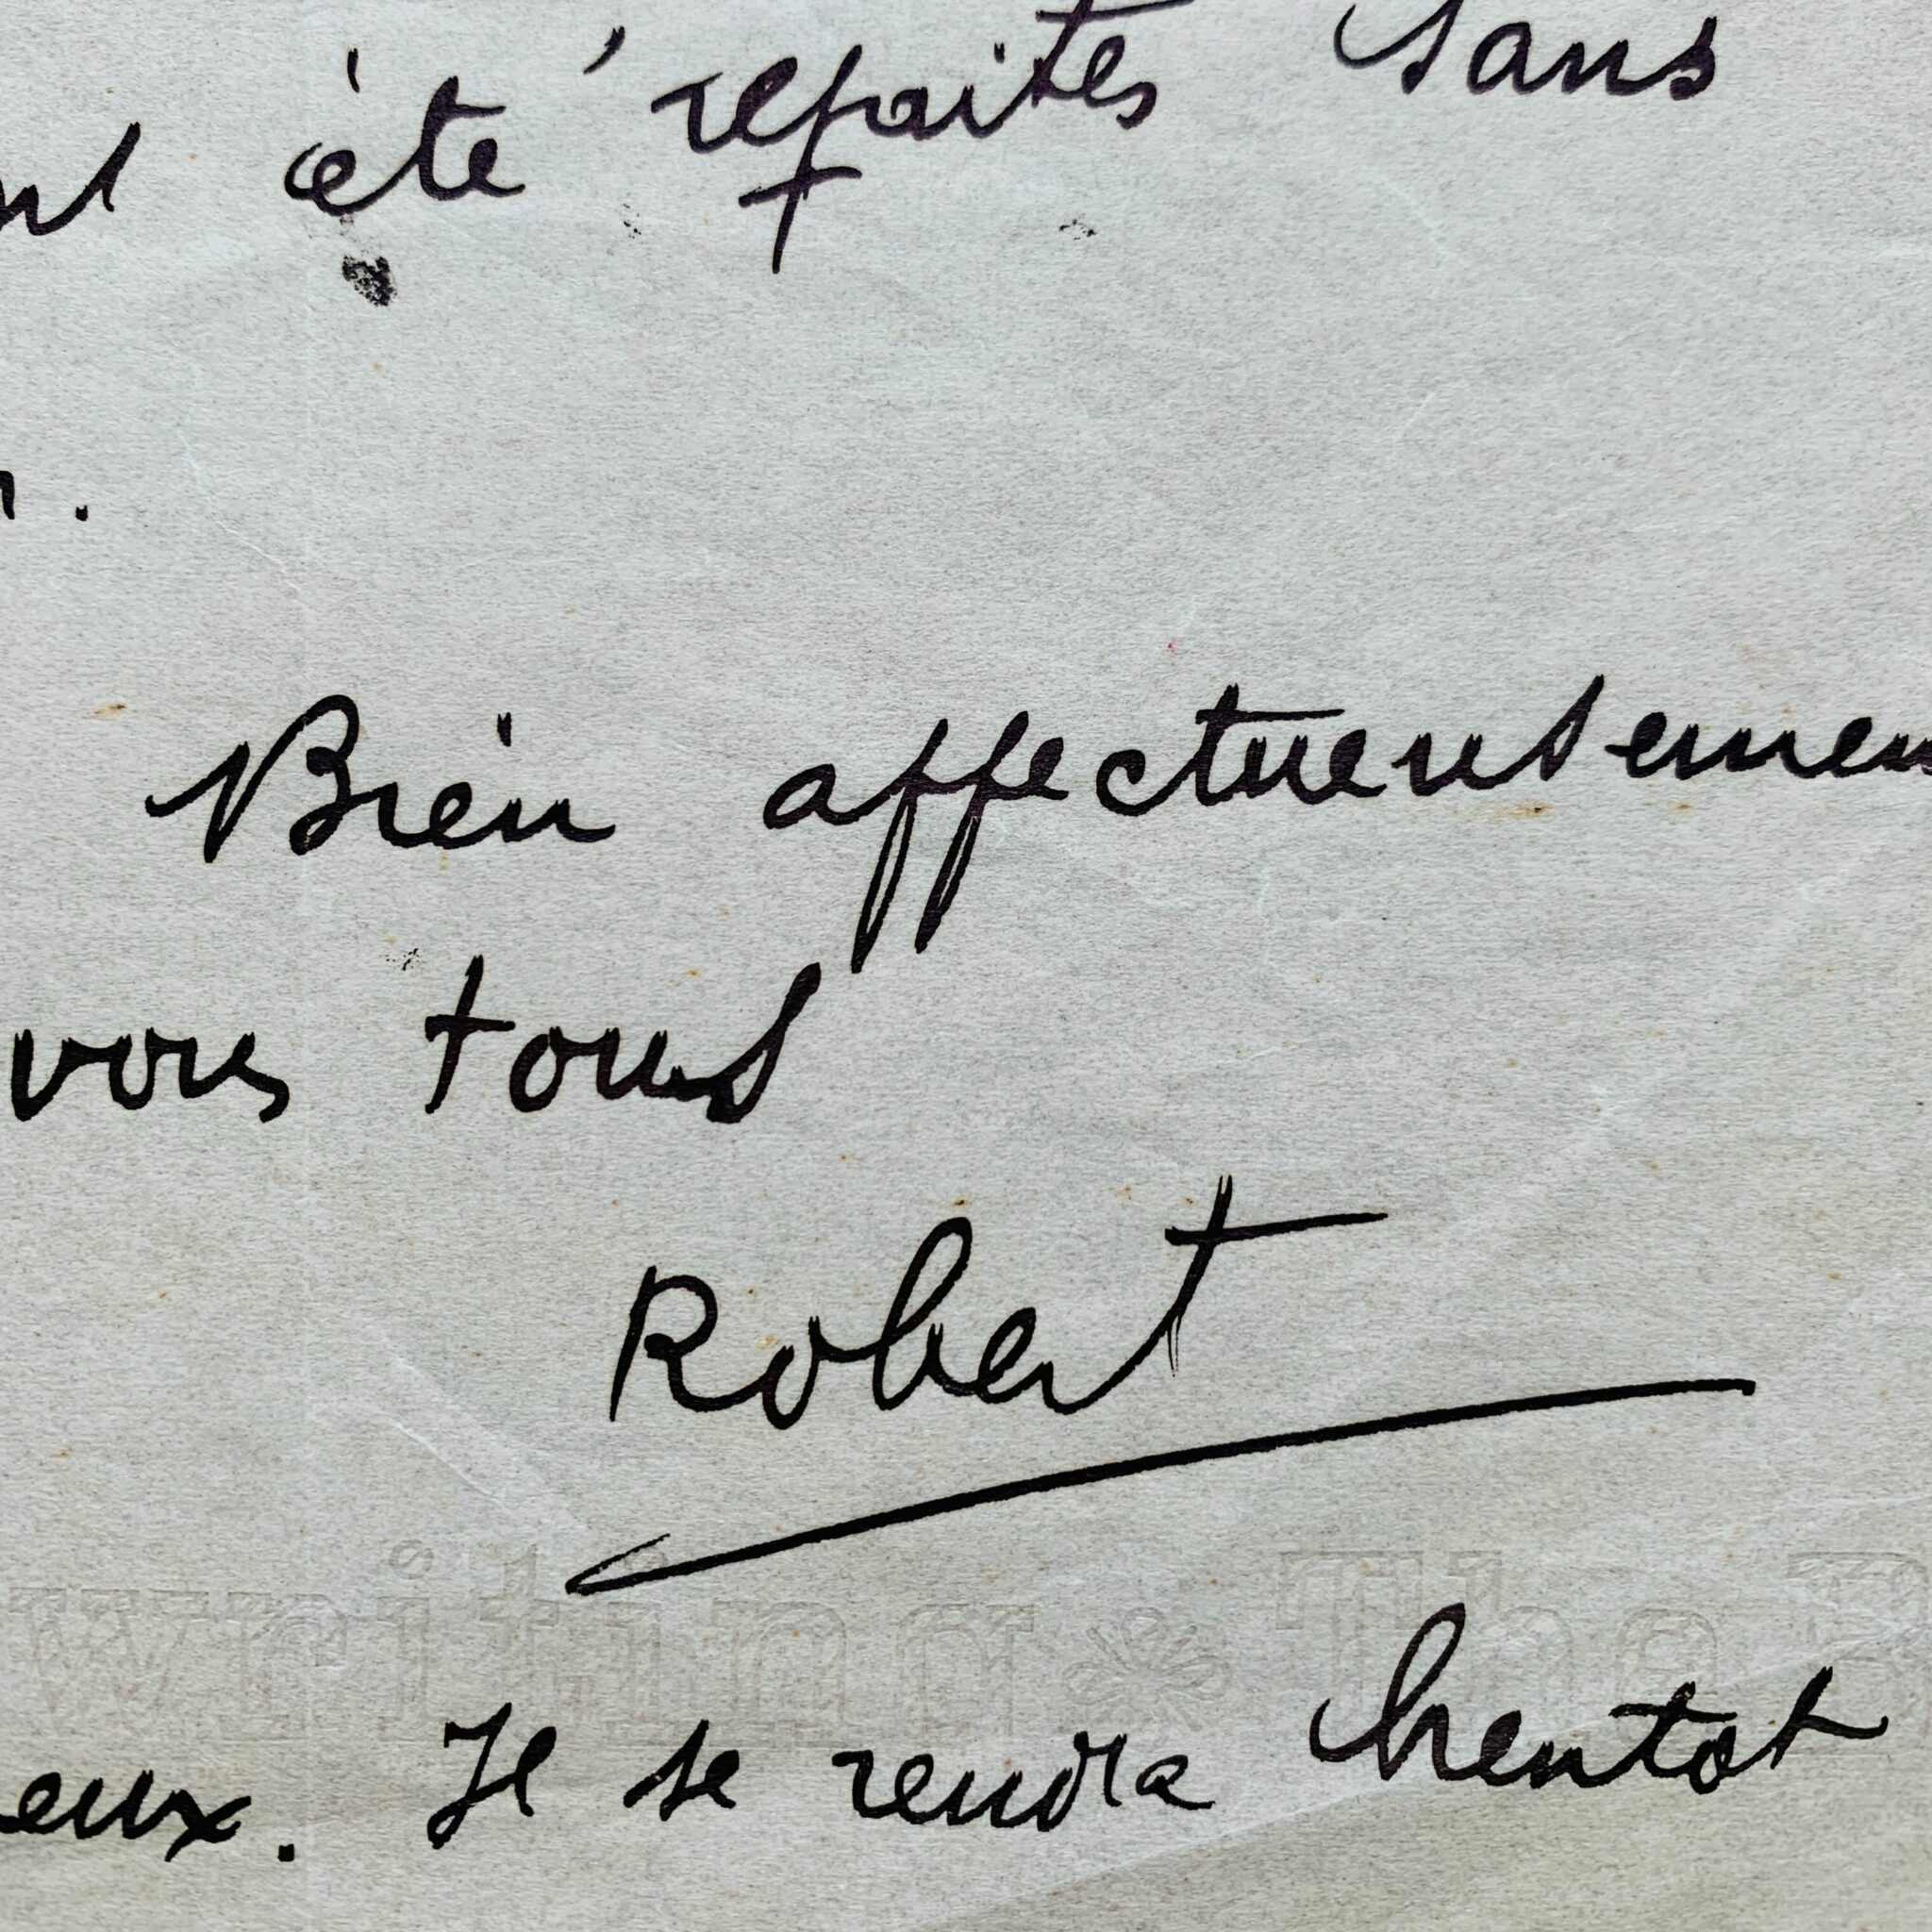 été refaites sans
Bien affectueusemen
vous tous
Robert
writing The
eux. Il se rendra bientot